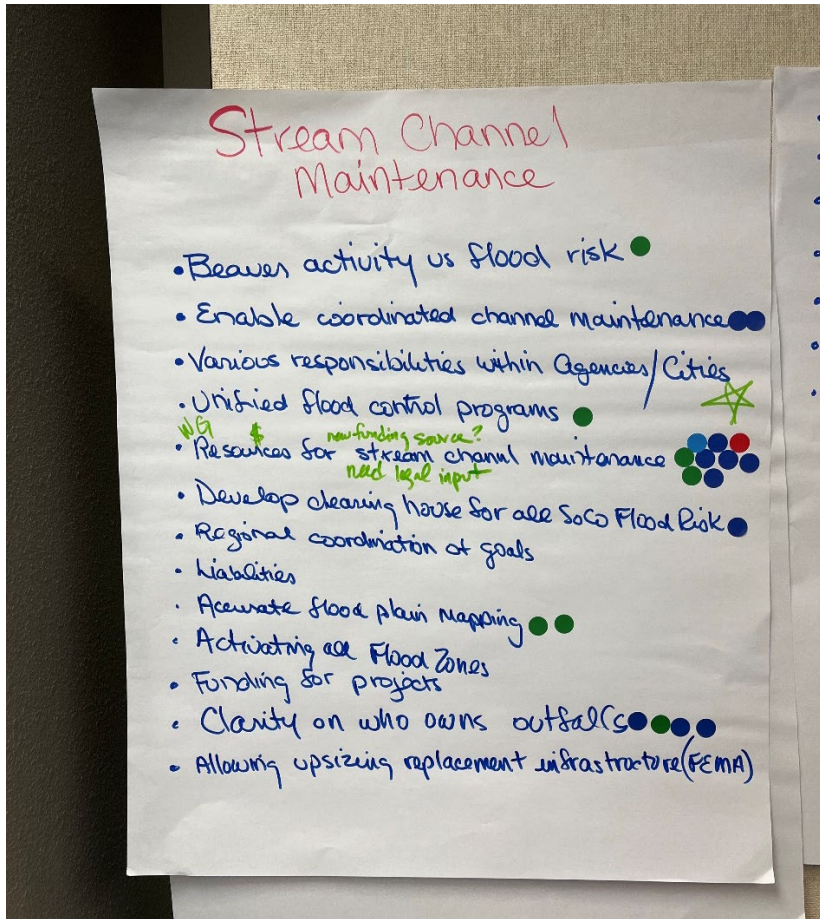 Stream Channel
Maintenance
• Beaver activity vs flood risk
• Enable coordinated channel maintenance
• Various responsibilities within Agencies/Cities
• Unified flood control programs
WG $ new funding source?
• Resources for stream channel maintenance
need legal input
• Develop clearing house for all SoCo Flood Risk
• Regional coordination of goals
• Liabilities
• Accurate flood plain Mapping
• Activating all Flood Zones
• Funding for projects
• Clarity on who owns outfalls
• Allowing upsizing replacement infrastructure (FEMA)